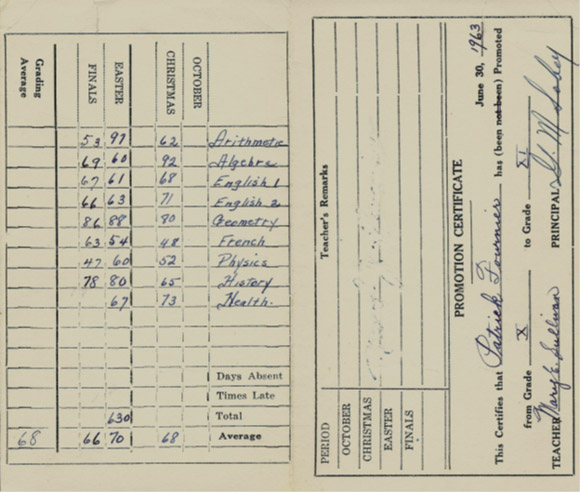 Grading Average FINALS EASTER CHRISTMAS OCTOBER
53 97 62 Arithmetic
69 60 92 Algebra
67 61 68 English 1
66 63 71 English 2
86 88 80 Geometry
63 54 48 French
47 60 52 Physics
78 80 65 History
67 73 Health.
Days Absent
Times Late
630 Total
68 66 70 68 Average
PERIOD Teacher's Remarks
OCTOBER
CHRISTMAS
EASTER
FINALS
PROMOTION CERTIFICATE
June 30, 1963
This Certifies that Patrick Fournier has (been not been) Promoted
from Grade X to Grade XI
TEACHER Mary E. Sullivan PRINCIPAL